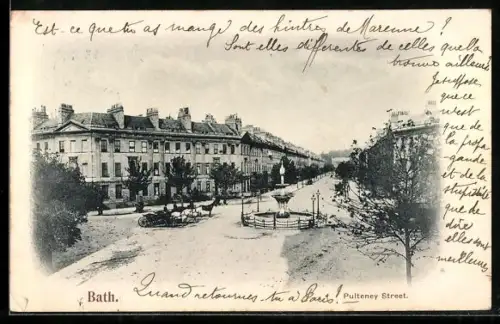 Est-ce que tu as mangé des huitres de Marenne ?
Sont elles différentes de celles qu'elle
trouve ailleurs
Je suppose
que ce
n'est
que de
la propa
gande
et de
la
stupidité
que de
dire
elles sont
meilleures
Bath.
Quand retournes-tu à Paris!
Pulteney Street.